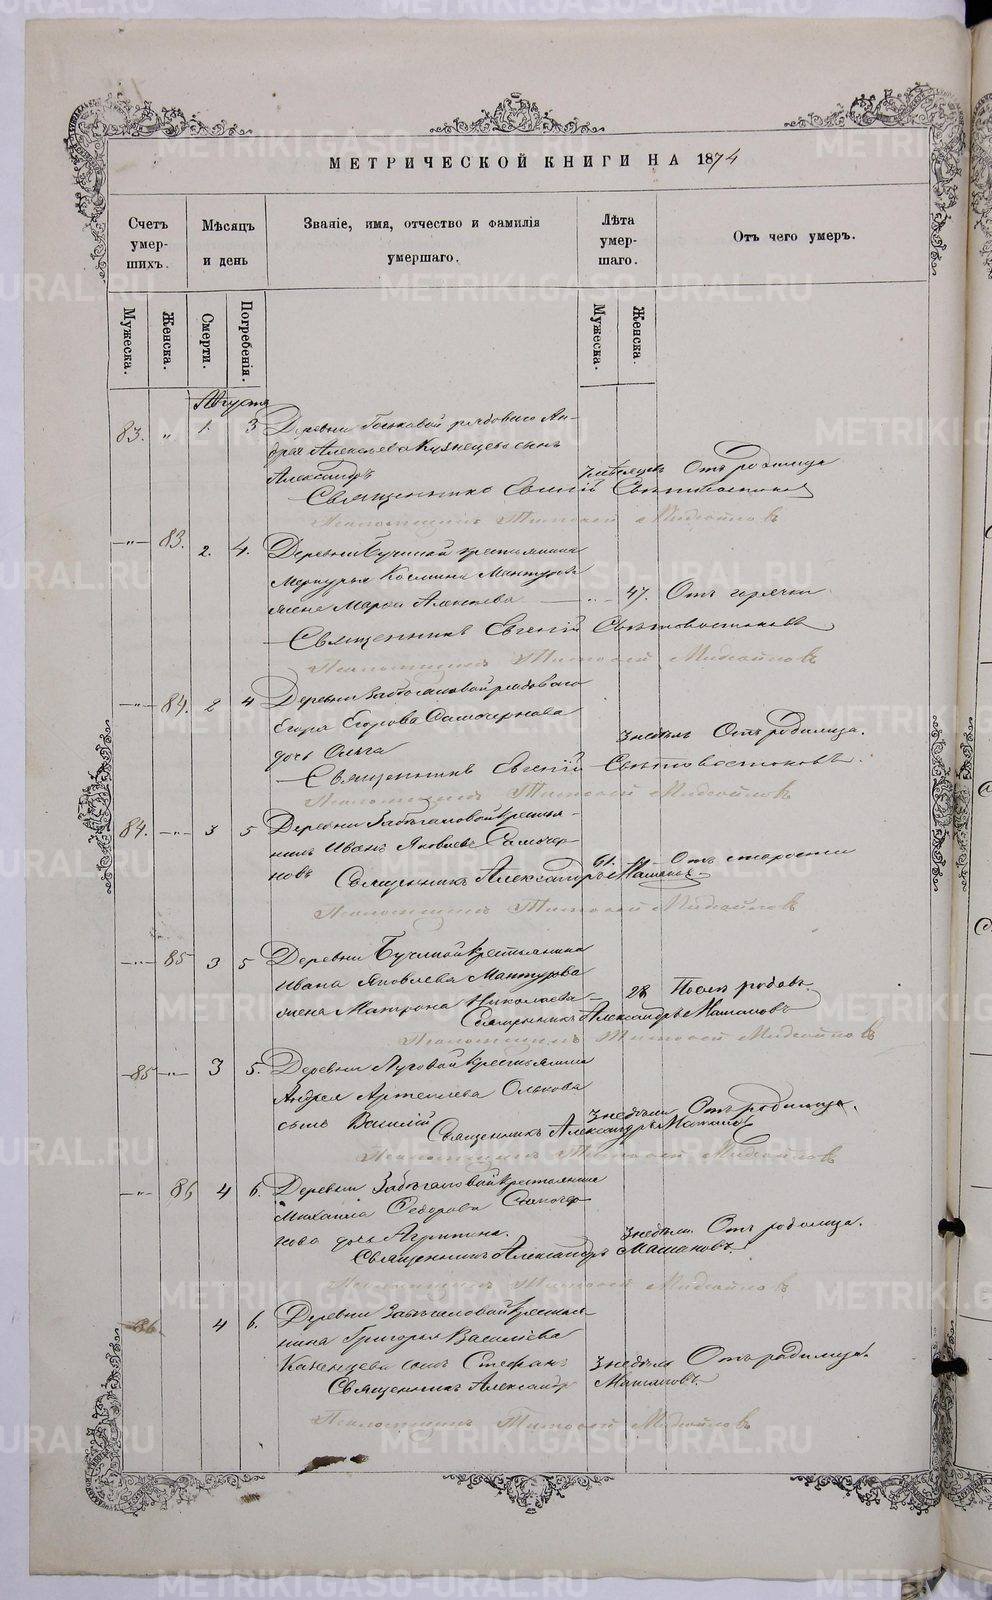 МЕТРИЧЕСКОЙ КНИГИ НА 1874
Счетъ умер-шихъ.
Мѣсяцъ и день
Званіе, имя, отчество и фамилія умершаго.
Лѣта умер-шаго.
Отъ чего умеръ.
Мужеска.
Женска.
Смерти.
Погребенія.
Мужеска.
Женска.
Августа
83. „ 1. 3 Деревни рядоваго Ан-
дрея Алексѣева Кузнецова сынъ
Александръ мѣсяцевъ Отъ родимца
Священникъ Евгеній Свѣтовостоковъ
Псаломщикъ Тимоѳей Михайловъ
—„— 83. 2. 4. Деревни Бучиной крестьянина
Меркурья Космина Мантурова
жена Марѳа Алексѣева —„— 47. Отъ горячки.
Священникъ Евгеній Свѣтовостоковъ
Псаломщикъ Тимоѳей Михайловъ
—„— 84. 2 4 Деревни рядоваго
Егора Егорова Самочернова
дочь Ольга 3 недѣль Отъ родимца.
Священникъ Евгеній Свѣтовостоковъ.
Псаломщикъ Тимоѳей Михайловъ
84. —„— 3 5 Деревни крестья-
нинъ Иванъ Яковлевъ Самочер-
новъ 61. Отъ старости
Священникъ Александръ Машановъ.
Псаломщикъ Тимоѳей Михайловъ
—„— 85 3 5 Деревни Бучиной крестьянина
Ивана Яковлева Мантурова
жена Матрона Николаева — 28 Послѣ родовъ.
Священникъ Александръ Машановъ
Псаломщикъ Тимоѳей Михайловъ
85 —„— 3 5. Деревни Луговой крестьянина
Андрея Артемьева Олькова
сынъ Василій 3 недѣли Отъ родимца.
Священникъ Александръ Машановъ
Псаломщикъ Тимоѳей Михайловъ
—„— 86 4 6. Деревни крестьянина
Михаила Ѳедорова Самочер-
нова дочь Агрипина. 3 недѣли. Отъ родимца.
Священникъ Александръ Машановъ.
Псаломщикъ Тимоѳей Михайловъ
86. 4 6. Деревни крестья-
нина Григорья Васильева
сынъ Стефанъ 3 недѣли Отъ родимца.
Священникъ Александръ Машановъ.
Псаломщикъ Тимоѳей Михайловъ
METRIKI.GASO-URAL.RU